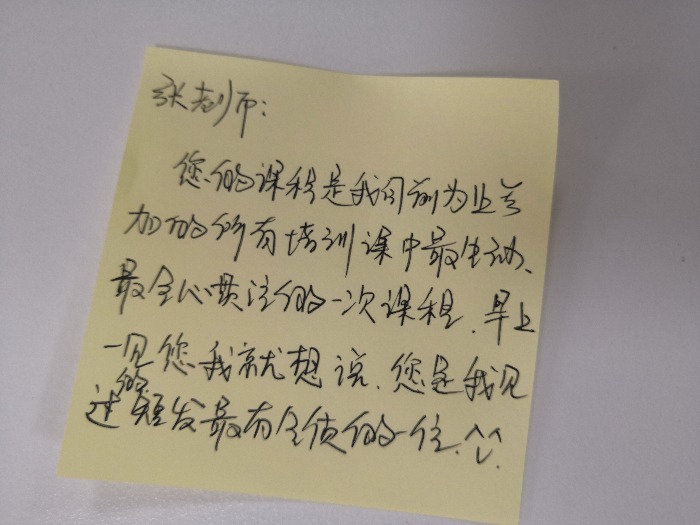 张老师:
您的课程是我目前为止参
加的所有培训课中最生动、
最全心贯注的一次课程.早上
一见您我就想说.您是我见
过的短发最有气质的一位.^^.